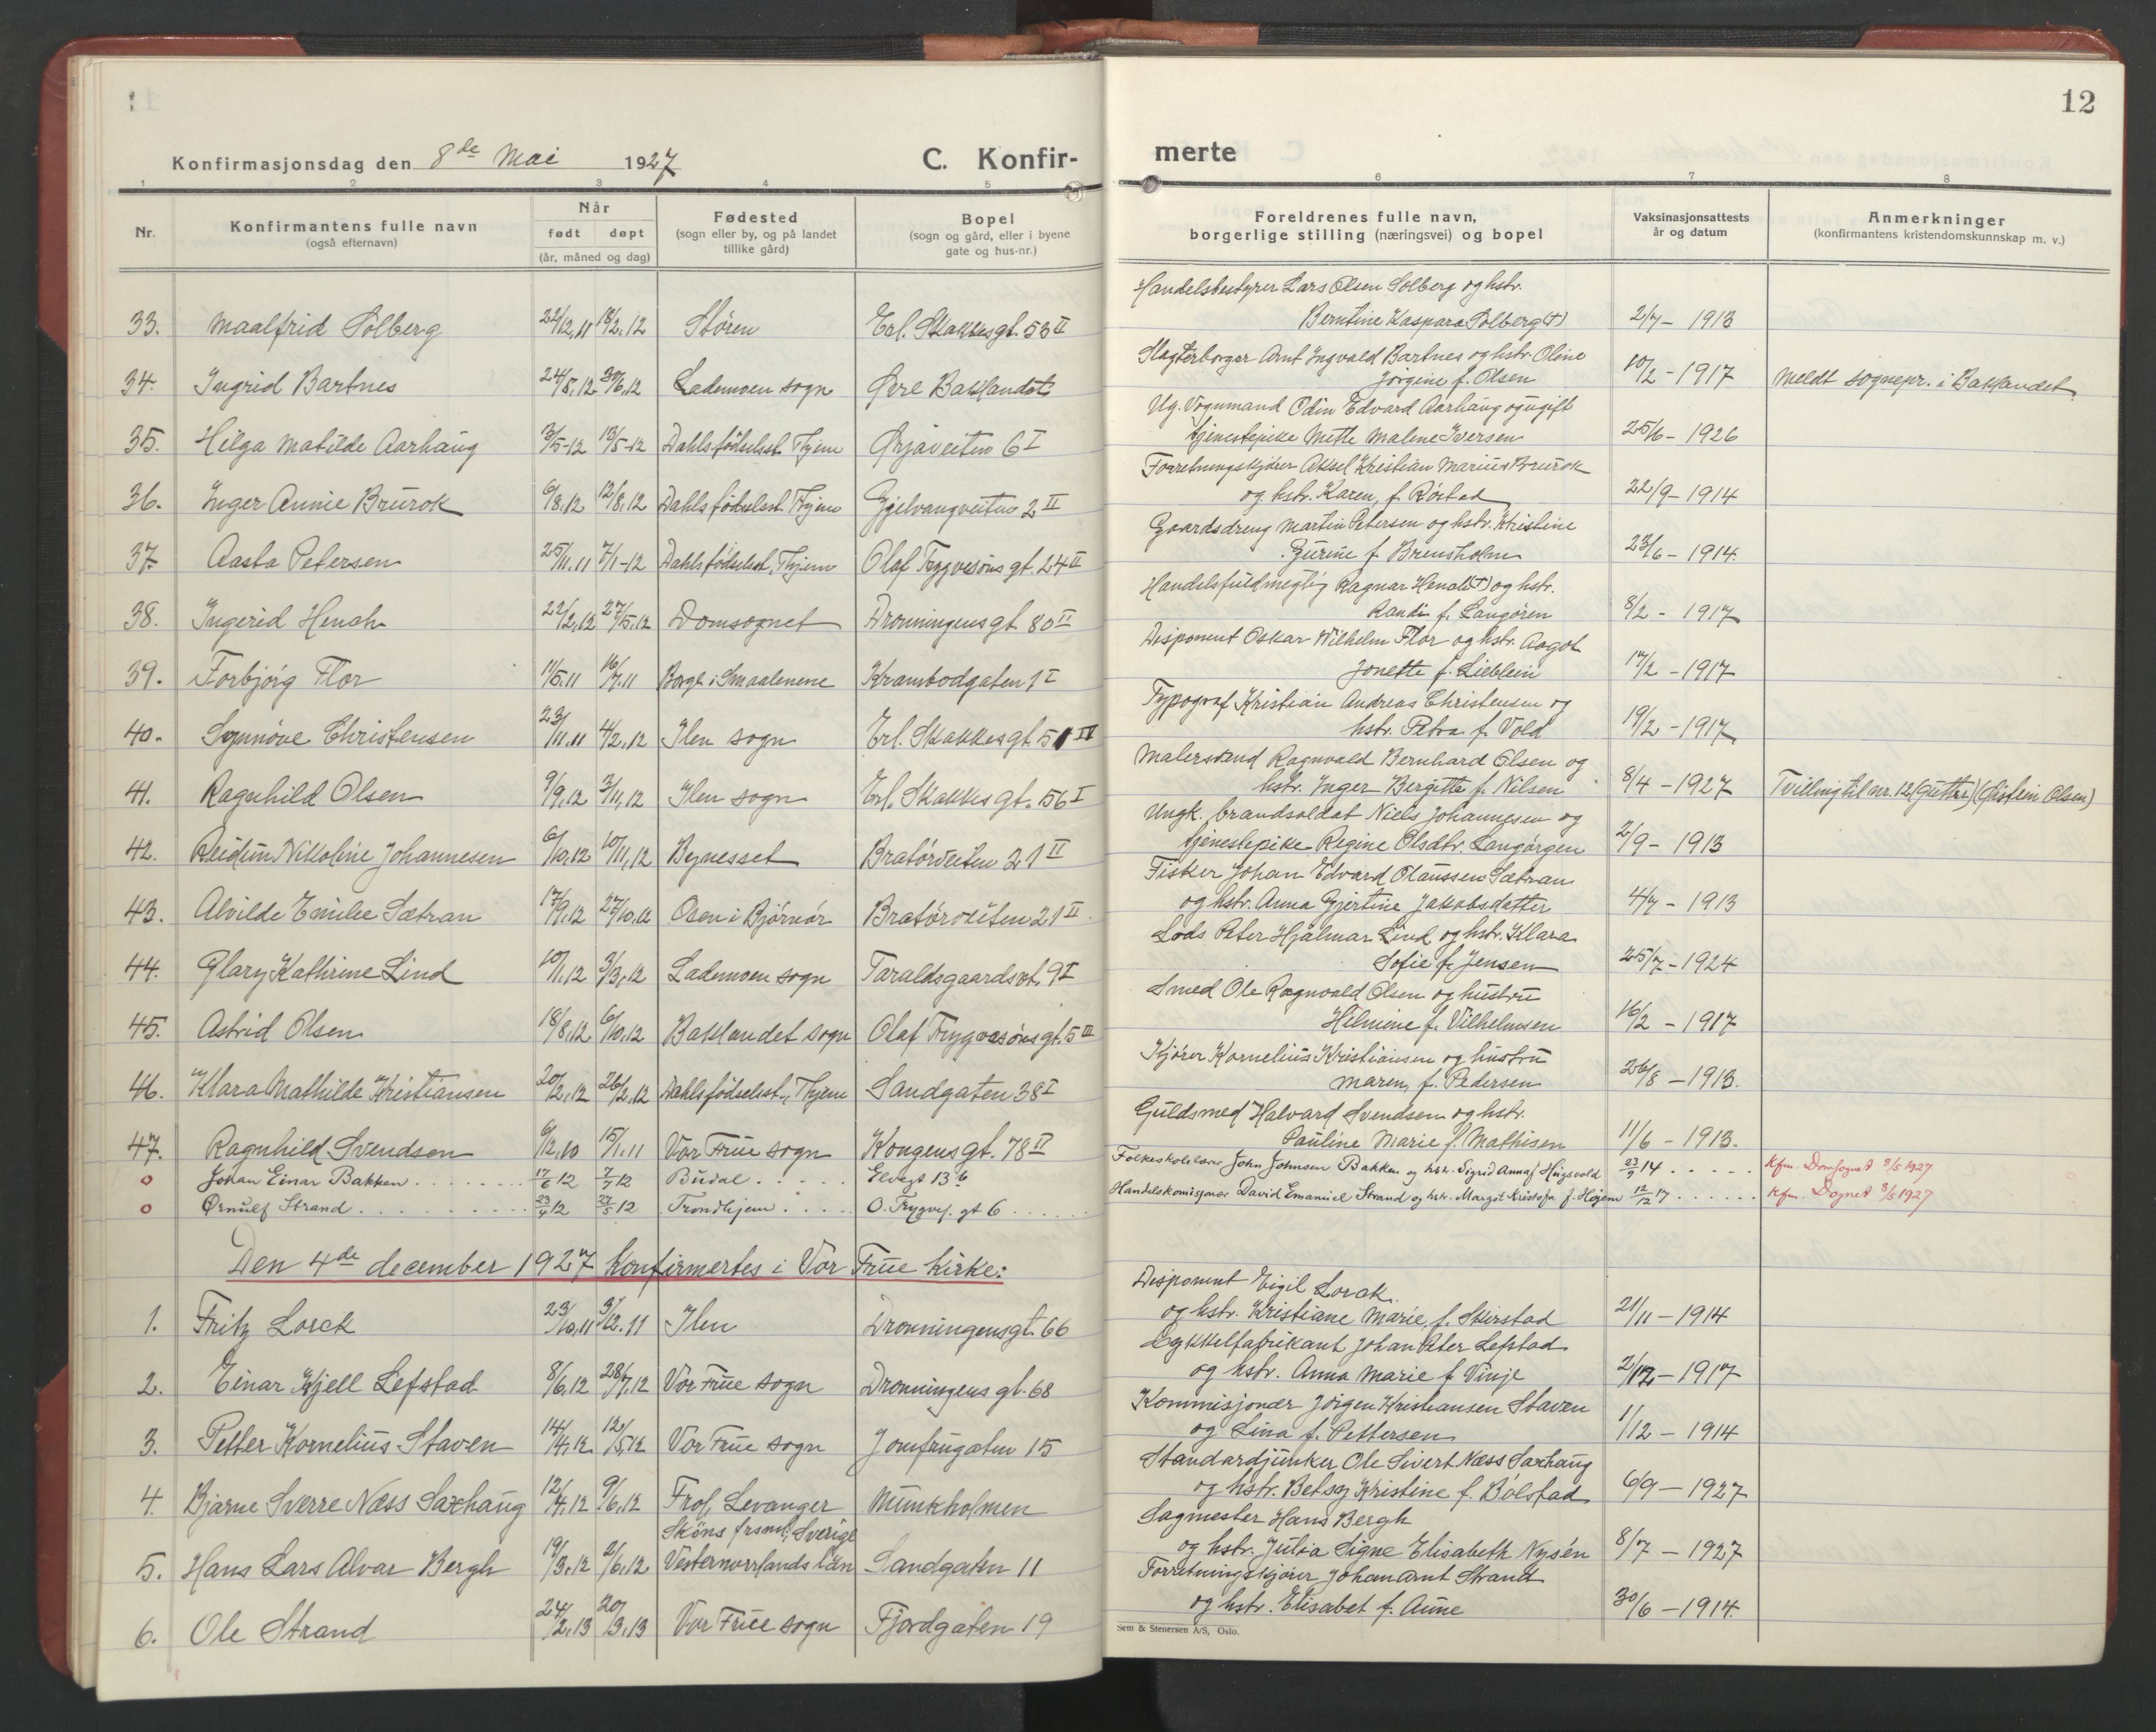 12
Konfirmasjonsdag den 8de Mai 1927 C. Konfir- merte
1 2 3 4 5 6 7 8
Nr. Konfirmantens fulle navn (også efternavn) Når født døpt (år, måned og dag) Fødested (sogn eller by, og på landet tillike gård) Bopel (sogn og gård, eller i byene gate og hus-nr.) Foreldrenes fulle navn, borgerlige stilling (næringsvei) og bopel Vaksinasjonsattests år og datum Anmerkninger (konfirmantens kristendomskunnskap m. v.)
Handelsbestyrer Lars Olsen Solberg og hstr.
33. Maalfrid Solberg 22/12.11 18/2.12 Støren Erl. Skakkesgt. 53 II Berntine Kaspara Solberg (†) 2/7 - 1913
Slagterborger Arnt Ingvald Bartnes og hstr. Oline
34. Ingrid Bartnes 24/8.12 30/6.12 Lademoen sogn Øvre Baklandet Jörgine f. Olsen 10/2 - 1917 Meldt sognepr. i Baklandet
Ug. Vognmand Odin Edvard Aarhaug og ugift
35. Helga Matilde Aarhaug 3/5-12 13/5-12 Dahls fødselsst. Thjem Ørjaveiten 6 I tjenestepike Mette Malene Iversen 25/6 - 1926
Forretningskjører Aksel Kristian Marius Brurok
36. Inger Annie Brurok 6/8.12 12/8.12 Dahls fødselsst. Thjem Gjelvangveiten 2 II og hstr. Karen, f. Röstad 22/9 - 1914
Gaardsdreng Martin Petersen og hstr. Kristine
37. Aasta Petersen 25/11.11 7/1-12 Dahls fødselsst. Thjem Olaf Trygvesöns gt. 24 II Gurine f. Brensholm 23/6 - 1914.
Handelsfuldmegtig Ragnar Henoh (†) og hstr.
38. Ingerid Henoh 22/2.12 27/5.12 Domsognet Dronningensgt. 80 II Randi f. Langören 8/2 - 1917
Disponent Oskar Wilhelm Flor og hstr. Aagot
39. Torbjörg Flor 11/5.11 16/7.11 Borge i Smaalenene Krambodgaten 1 I Jonette f. Lieblein 17/2 - 1917
Typograf Kristian Andreas Christensen og
40. Synnöve Christensen 23/11.11 4/2.12 Ilen sogn Erl. Skakkesgt. 51 IV hstr. Petra f. Vold 19/2 - 1917
Malersvend Ragnvald Bernhard Olsen og
41. Ragnhild Olsen 9/9.12 3/11.12 Ilen sogn Erl. Skakkes gt. 56 I hstr. Inger Bergitte f. Nilsen 8/4 - 1927 Tvilling til nr. 12 (Gutter) (Øistein Olsen)
Ungk. brandsoldat Niels Johannesen og
42. Reidun Nikoline Johannesen 6/10.12 10/11.12 Bynesset Bratörveiten 21 II tjenestepike Regine Olsdtr. Langörgen 2/9 - 1913
Fisker Johan Edvard Olaussen Sætran
43. Alvilde Emilie Sætran 17/9.12 27/10.12 Osen i Bjørnør Bratörveiten 21 II. og hstr. Anna Gjertine Jakobsdatter 4/7 - 1913
Lods Peter Hjalmar Lind og hstr. Klara
44. Glary Kathrine Lind 10/1.12 3/3.12 Lademoen sogn Taraldsgaardsvt. 9 I Sofie f. Jensen 25/7 - 1924
Smed Ole Ragnvald Olsen og hustru
45. Astrid Olsen 18/8.12 6/10.12 Baklandet sogn Olaf Trygvasöns gt. 5 III Hilmine f. Vilhelmsen 16/2 - 1917
Kjører Kornelius Kristiansen og hustru
46. Klara Mathilde Kristiansen 20/2.12 26/2.12 Dahls fødselsst., Thjem Sandgaten 38 I Maren, f. Pedersen 26/8 - 1913.
Guldsmed Halvard Svendsen og hstr.
47. Ragnhild Svendsen 6/12.10 15/1.11 Vor Frue sogn Kongensgt. 78 II Pauline Marie f. Mathisen 11/6 - 1913.
o Johan Einar Bakken 17/6 12 7/7 12 Budal Elvegt 13 b Folkeskolelærer John Johnsen Bakken og hstr. Sigrid Anna f. Hugsvold 23/9 14 Kfm. Domsognet 8/5 1927
o Ørnulf Strand 23/4 12 27/5 12 Trondhjem O. Trygvas. gt 6 Handelskomisjonær David Emanuel Strand og hstr. Margot Kristofa f. Højem 12/12 17 Kfm. Dognet 8/5 1927
Den 4de december 1927 konfirmertes i Vor Frue kirke:
Disponent Eigil Lorck
1. Fritz Lorck 23/10.11 3/12.11 Ilen Dronningensgt. 66 og hstr. Kristiane Marie, f. Skirstad 21/11 - 1914
Lykkelfabrikant Johan Peter Lefstad
2. Einar Kjell Lefstad 8/6.12 28/7.12 Vor Frue sogn Dronningens gt. 68 og hstr. Anna Marie f. Vinje 2/12 - 1917
Kommisjonær Jörgen Kristiansen Staven
3. Petter Kornelius Staven 14/4.12 12/5.12 Vor Frue sogn Jomfrugaten 15 og Lina f. Pettersen 1/12 - 1914
Standardjunker Ole Sivert Næss Saxhaug
4. Bjarne Sverre Næss Saxhaug 12/4.12 9/6.12 Frol, Levanger Munkholmen og hstr. Betsy Kristine f. Bölstad 6/9 - 1927
Sköns frsml., Sverige Sagmester Hans Bergh
5. Hans Lars Alvar Bergh 19/3.12 2/6.12 Vesternorrlands län Sandgaten 11 og hstr. Julia Signe Elisabeth Nysén 8/7 - 1927
Forretningskjører Johan Arnt Strand
6. Ole Strand 24/2.13 20/3.13 Vor Frue sogn Fjordgaten 19 og hstr. Elisabet f. Aune 30/6 - 1914.
Sem & Stenersen A/S, Oslo.